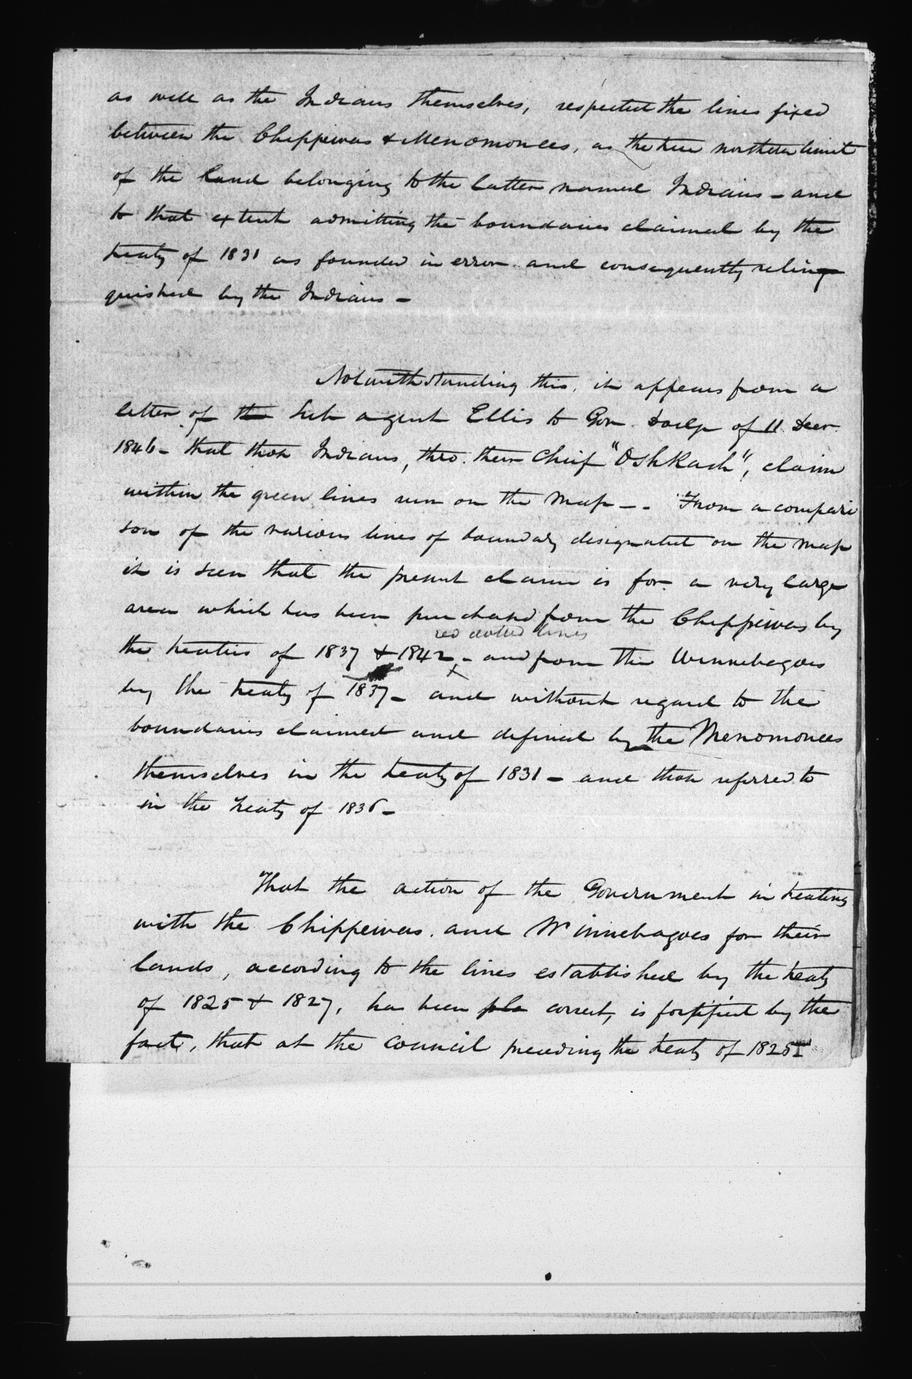 as well as the Indians themselves, respected the lines fixed
between the Chippewas & Menomonees, as the true northern limit
of the land belonging to the latter named Indians - and
to that extent admitting the boundaries claimed by the
treaty of 1831 as founded in error and consequently relin-
quished by the Indians -
Notwithstanding this, it appears from a
letter of the Sub agent Ellis to Gov. Dodge of 11 Decr
1846 - that those Indians, thro. their Chief "Oshkosh", claim
within the green lines run on the map - - From a compari
son of the various lines of boundary designated on the map
it is seen that the present claim is for a very large
area which has been purchased from the Chippewas by
red dotted lines
the treaties of 1837 & 1842, - and from the Winnebagoes
by the treaty of 1837 - and without regard to the
boundaries claimed and defined by the Menomonees
themselves in the treaty of 1831 - and those referred to
in the treaty of 1836 -
That the action of the Government in treating
with the Chippewas and Winnebagoes for their
lands, according to the lines established by the treaty
of 1825 & 1827, has been correct, is fortified by the
fact, that at the council preceding the treaty of 1825